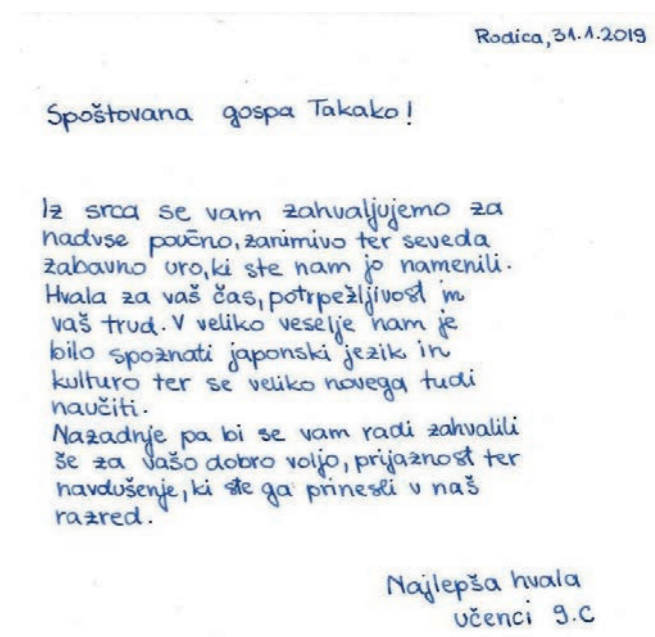 Rodica, 31.1.2019
Spoštovana gospa Takako!
Iz srca se vam zahvaljujemo za
nadvse poučno, zanimivo ter seveda
zabavno uro, ki ste nam jo namenili.
Hvala za vaš čas, potrpežljivost in
vaš trud. V veliko veselje nam je
bilo spoznati japonski jezik in
kulturo ter se veliko novega tudi
naučiti.
Nazadnje pa bi se vam radi zahvalili
še za vašo dobro voljo, prijaznost ter
navdušenje, ki ste ga prinesli v naš
razred.
Najlepša hvala
učenci 9.C